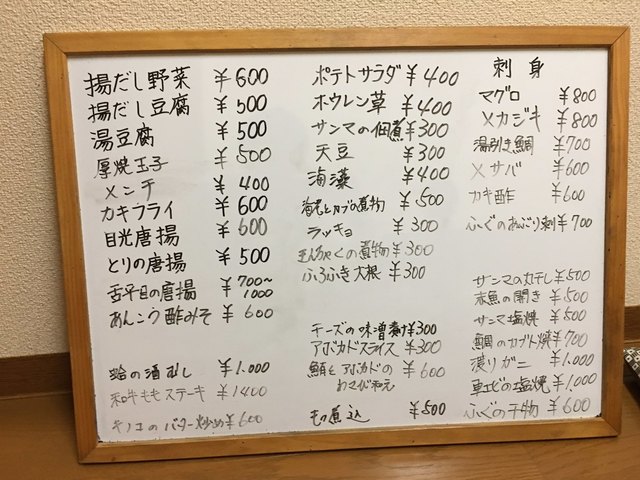 揚だし野菜 ¥600
揚だし豆腐 ¥500
湯豆腐 ¥500
厚焼玉子 ¥500
メンチ ¥400
カキフライ ¥600
目光唐揚 ¥600
とりの唐揚 ¥500
舌平目の唐揚 ¥700〜1000
あんこう酢みそ ¥600
蛤の酒むし ¥1.000
和牛ももステーキ ¥1400
キノコのバター炒め ¥600
ポテトサラダ ¥400
ホウレン草 ¥400
サンマの佃煮 ¥300
天豆 ¥300
海藻 ¥400
海老とカブの煮物 ¥500
ラッキョ ¥300
きんちゃくの煮物 ¥300
ふろふき大根 ¥300
チーズの味噌漬け ¥300
アボカドスライス ¥300
鮪とアボカドのわさび和え ¥600
もつ煮込 ¥500
刺身
マグロ ¥800
メカジキ ¥800
湯引き鯛 ¥700
〆サバ ¥600
カキ酢 ¥600
ふぐのあぶり刺 ¥700
サンマの丸干し ¥500
赤魚の開き ¥500
サンマ塩焼 ¥500
鯛のカブト焼 ¥700
渡りガニ ¥1.000
車エビの塩焼 ¥1.000
ふぐの干物 ¥600